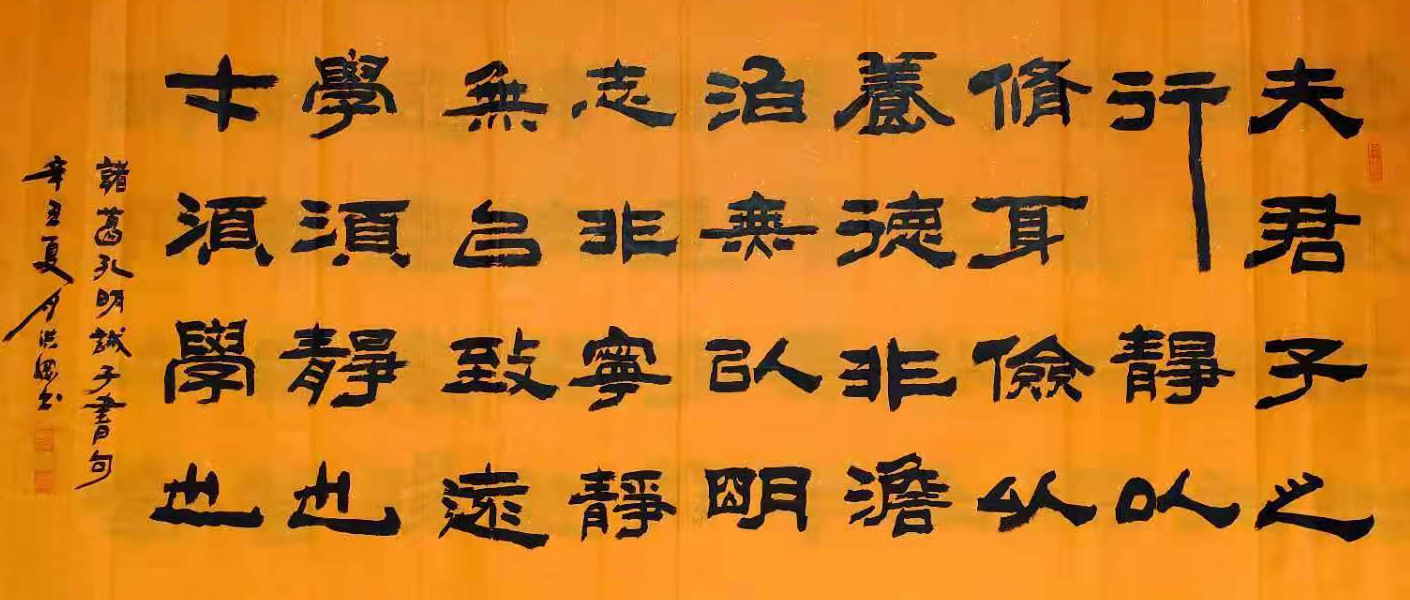 夫君子之
行靜以
脩身儉以
養德非澹
泊無以明
志非寧靜
無以致遠
學須靜也
才須學也
諸葛孔明誡子書句
辛丑夏月洪書